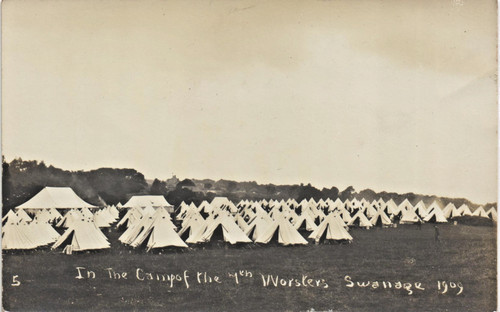 5 In The Camp of the 7th Worsters Swanage 1909